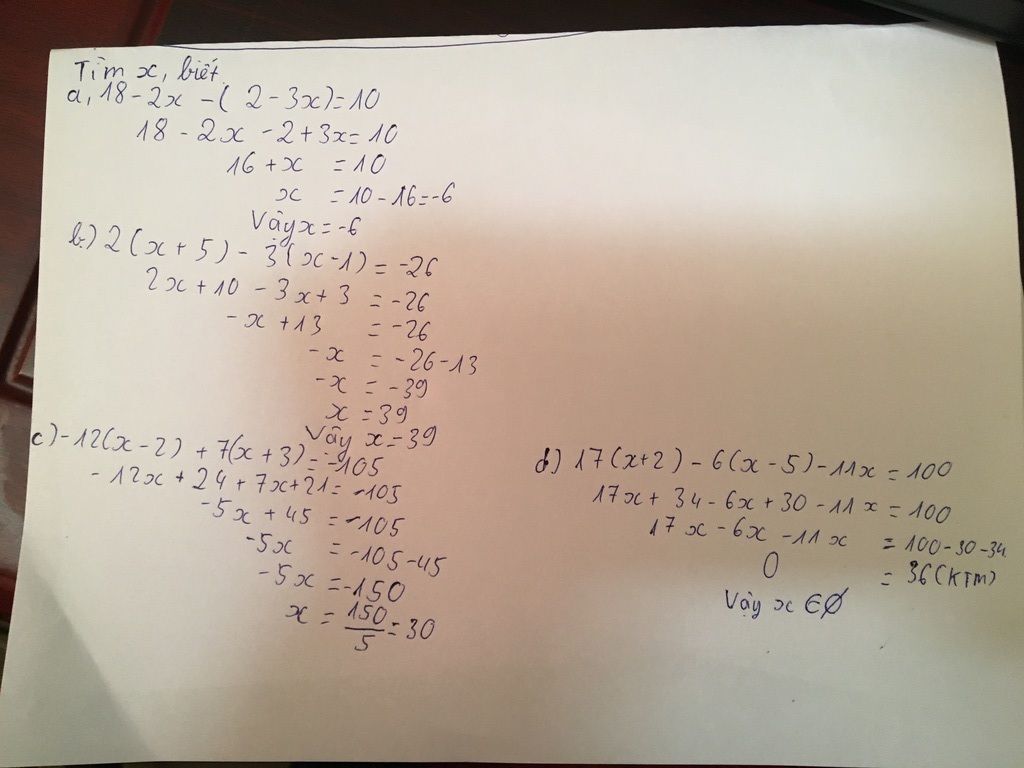 Tìm x, biết
a, 18 - 2x - ( 2 - 3x) = 10
18 - 2x - 2 + 3x = 10
16 + x = 10
x = 10 - 16 = -6
Vậy x = -6
b.) 2 (x + 5) - 3 (x - 1) = -26
2x + 10 - 3x + 3 = -26
-x + 13 = -26
-x = -26 - 13
-x = -39
x = 39
Vậy x = 39
c) -12(x - 2) + 7(x + 3) = -105
-12x + 24 + 7x + 21 = -105
-5x + 45 = -105
-5x = -105 - 45
-5x = -150
x = 150/5 = 30
d) 17(x + 2) - 6(x - 5) - 11x = 100
17x + 34 - 6x + 30 - 11x = 100
17x - 6x - 11x = 100 - 30 - 34
0 = 36 (KTM)
Vậy x ∈ Ø